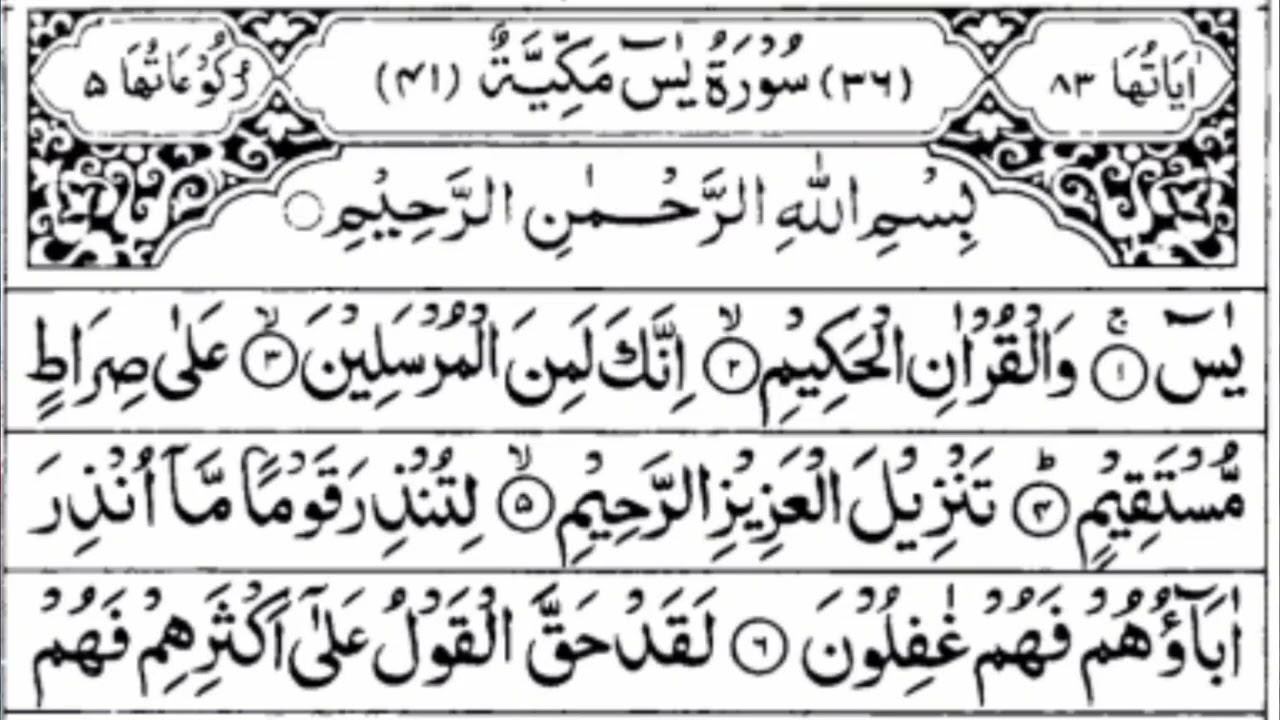 اٰيَاتُهَا ٨٣ (٣٦) سُوْرَةُ يٰسٓ مَكِّيَّةٌ (۴۱) رُكُوْعَاتُهَا ۵
بِسْمِ اللّٰهِ الرَّحْمٰنِ الرَّحِيْمِ ○
يٰسٓ ۚ﴿۱﴾ وَالْقُرْاٰنِ الْحَكِيْمِ ۙ﴿۲﴾ اِنَّكَ لَمِنَ الْمُرْسَلِيْنَ ۙ﴿۳﴾ عَلٰى صِرَاطٍ
مُّسْتَقِيْمٍ ؕ﴿۴﴾ تَنْزِيْلَ الْعَزِيْزِ الرَّحِيْمِ ۙ﴿۵﴾ لِتُنْذِرَ قَوْمًا مَّاۤ اُنْذِرَ
اٰبَآؤُهُمْ فَهُمْ غٰفِلُوْنَ ﴿۶﴾ لَقَدْ حَقَّ الْقَوْلُ عَلٰٓى اَكْثَرِهِمْ فَهُمْ